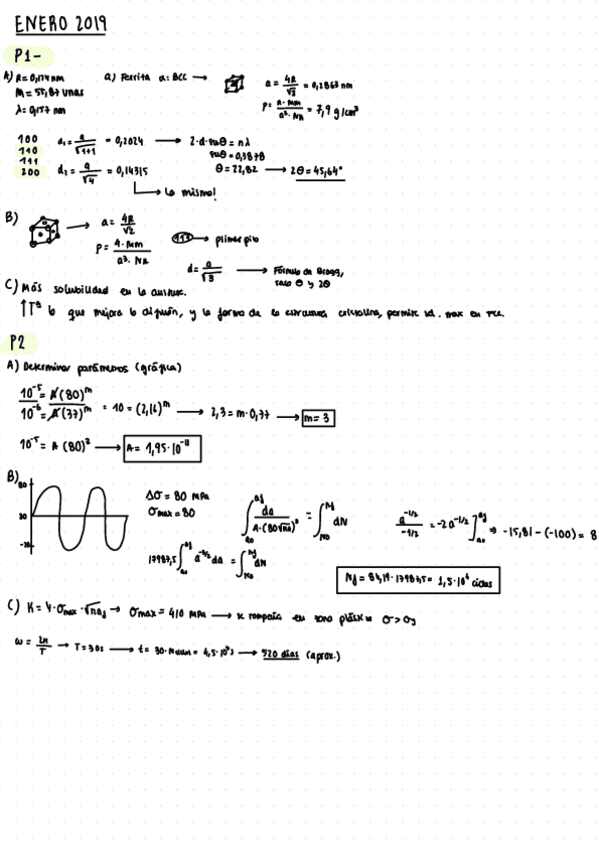 ENERO 2019
P1-
A) R = 0,124 nm
M = 55,87 umas
λ = 0,157 nm
a) Ferrita α: BCC → a = 4R/√3 = 0,2863 nm
ρ = n·Mm/a³·NA = 7,9 g/cm³
100
110
111
200
d₁ = a/√1+1 = 0,2024 → 2·d·senθ = nλ
senθ = 0,3878
θ = 22,82 → 2θ = 45,64°
d₂ = a/√4 = 0,14315
Lo mismo!
B) → a = 4R/√2
ρ = 4·Mm/a³·NA
111 → primer pico
d = a/√3 → Fórmula de Bragg,
saco θ y 2θ
C) Más solubilidad en la
↑Tª lo que mejora la difusión, y la forma de la estructura cristalina, permite sol. max en FCC.
P2
A) Determinar parámetros (gráfica)
10⁻⁵ = A(80)ᵐ / 10⁻⁶ = A(37)ᵐ = 10 = (2,16)ᵐ → 2,3 = m·0,77 → m = 3
10⁻⁵ = A (80)³ → A = 1,95·10⁻¹¹
B) Δσ = 80 MPa
σmax = 80
∫ da/A·(80√πa)³ = ∫ dN
17987,5 ∫ a⁻³/² da = ∫ dN
a⁻¹/²/-1/2 = -2a⁻¹/² ] ⇒ -15,81 - (-100) = 8
Nf = 84,19·17987,5 = 1,5·10⁶ ciclos
C) K = Y·σmax·√πaf → σmax = 410 MPa → se rompería en zona plástica σ > σy
ω = 2π/T → T = 30s → t = 30· = 4,5·10⁷s → 520 días (aprox.)